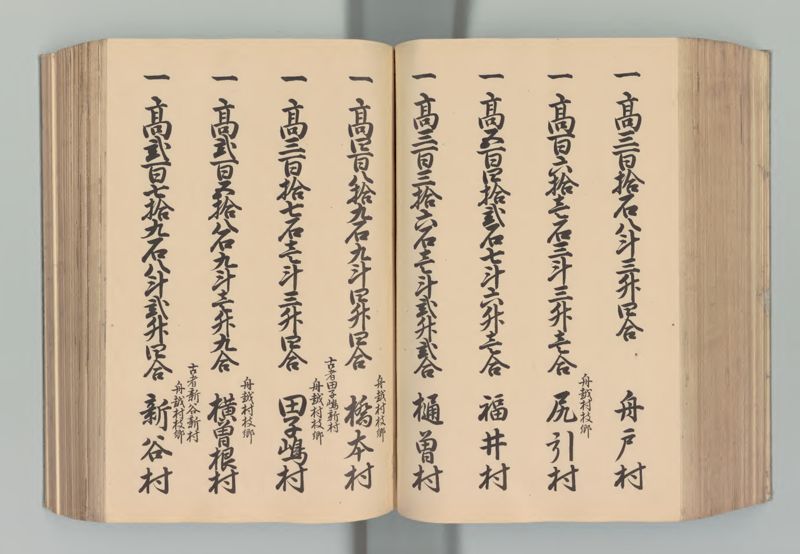 一 高三百拾石八斗三升四合 舟戸村
一 高百六拾壱石三斗三升壱合 舟越村枝郷 尻引村
一 高五百四拾弐石七斗六升壱合 福井村
一 高三百三拾六石壱斗弐升弐合 樋曽村
一 高四百八拾九石九斗四升四合 舟越村枝郷 橋本村
一 高三百拾七石壱斗三升四合 古者田子嶋新村 舟越村枝郷 田子嶋村
一 高弐百五拾八石九斗壱升九合 舟越村枝郷 横曽根村
一 高弐百七拾九石八斗弐升四合 古者新谷新村 舟越村枝郷 新谷村